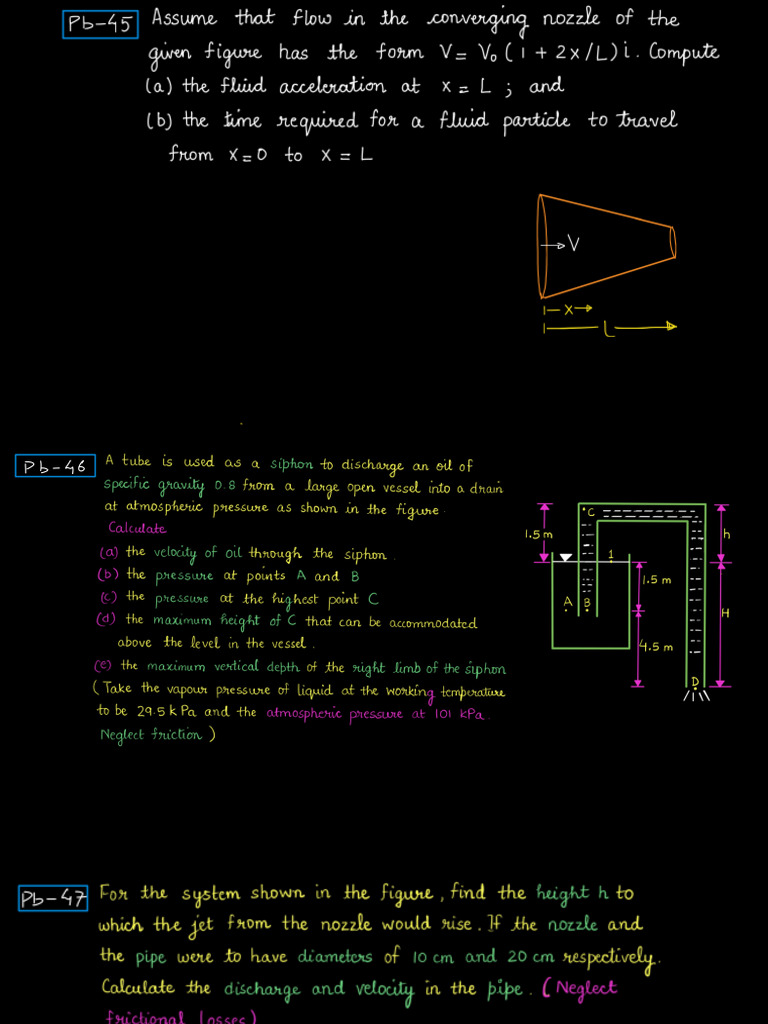 Pb-45
Assume that flow in the converging nozzle of the
given figure has the form V= V₀ ( 1 + 2x/L) i. Compute
(a) the fluid acceleration at x = L ; and
(b) the time required for a fluid particle to travel
from x=0 to x = L
V
x
L
Pb-46
A tube is used as a siphon to discharge an oil of
specific gravity 0.8 from a large open vessel into a drain
at atmospheric pressure as shown in the figure.
Calculate
(a) the velocity of oil through the siphon.
(b) the pressure at points A and B
(c) the pressure at the highest point C
(d) the maximum height of C that can be accommodated
above the level in the vessel.
(e) the maximum vertical depth of the right limb of the siphon
(Take the vapour pressure of liquid at the working temperature
to be 29.5 kPa and the atmospheric pressure at 101 kPa.
Neglect friction )
C
1.5 m
h
1
1.5 m
A
B
H
4.5 m
D
Pb-47
For the system shown in the figure, find the height h to
which the jet from the nozzle would rise. If the nozzle and
the pipe were to have diameters of 10 cm and 20 cm respectively.
Calculate the discharge and velocity in the pipe. (Neglect
frictional losses)